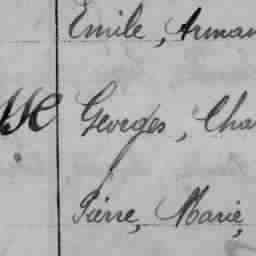 Emile, Arman
sse Georges, Cha
Pierre, Marie,